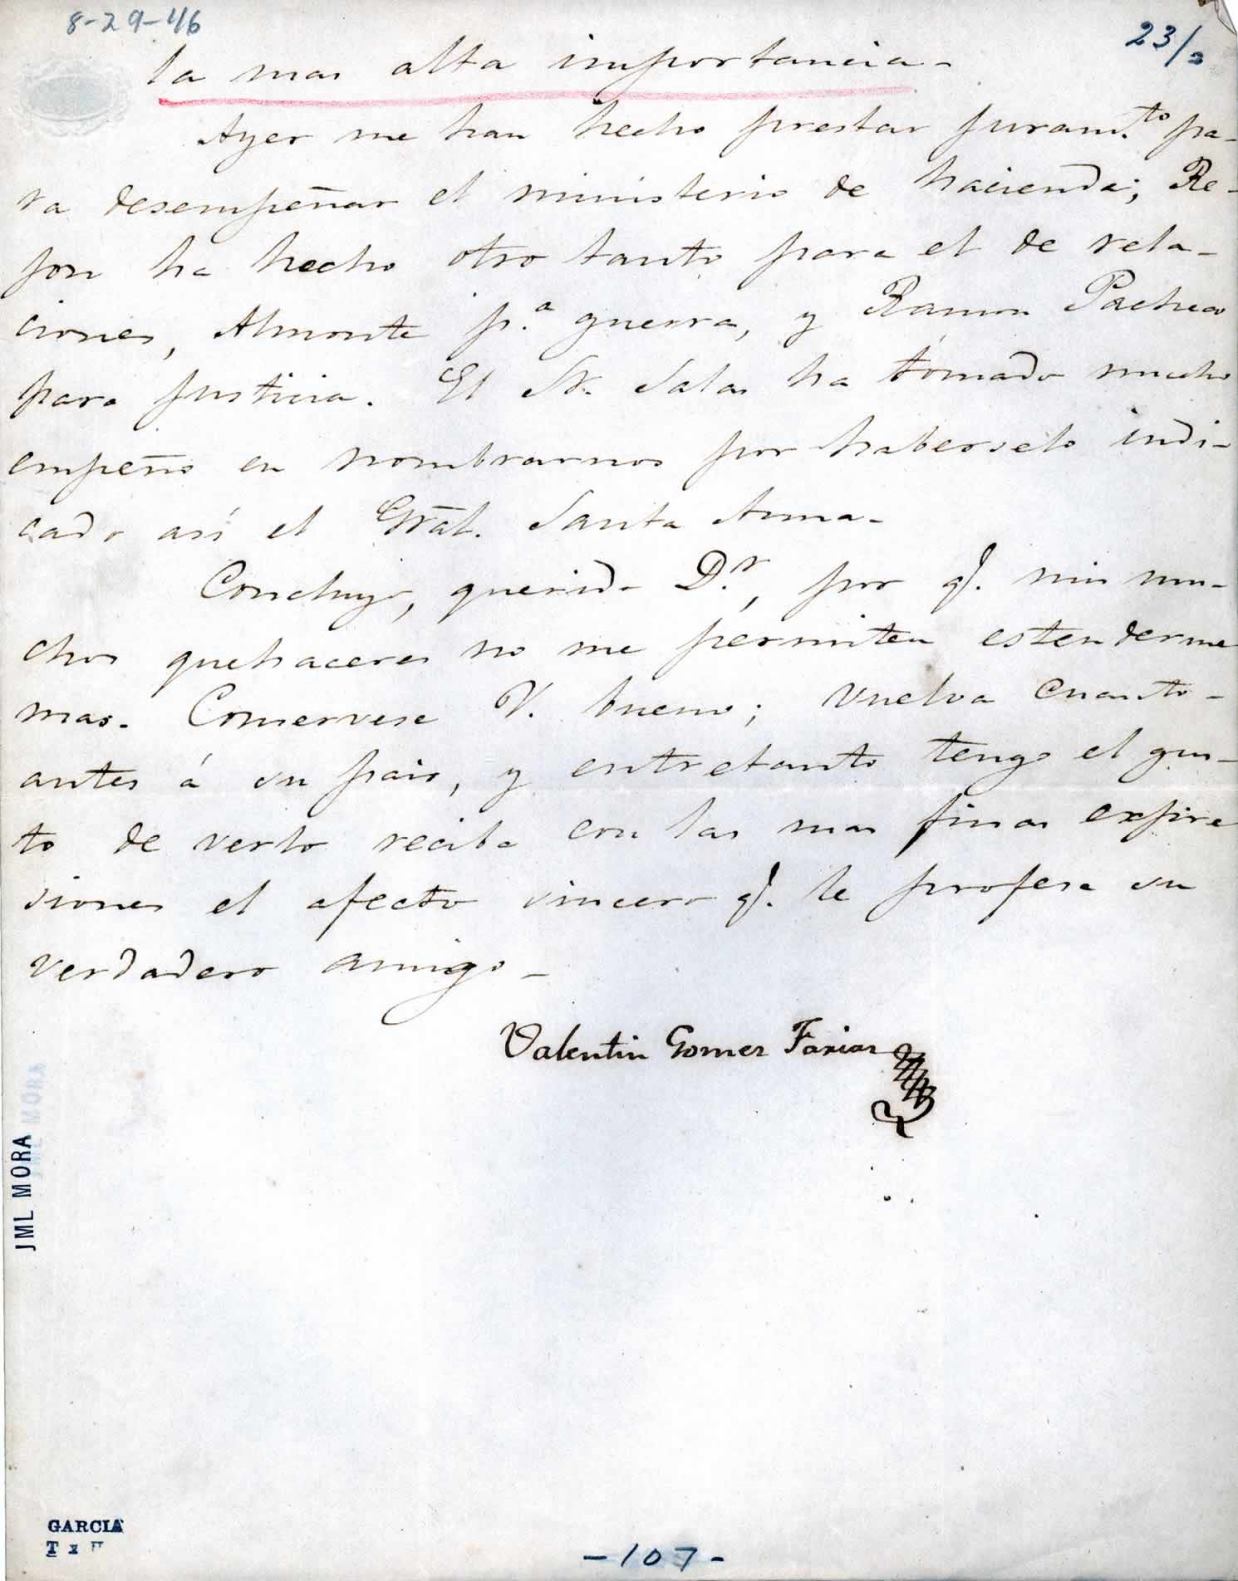 8-29-46
23/2
la mas alta importancia.-
Ayer me han hecho prestar juram.to pa-
ra desempeñar el ministerio de hacienda; Re-
jon ha hecho otro tanto para el de rela-
ciones, Almonte p.a guerra, y Ramon Pacheco
para justicia. El Sr. Salas ha tomado mucho
empeño en nombrarnos por haberselo indi-
cado así el Gral. Santa Anna-
Concluyo, querido D.r, por q. mis mu-
chos quehaceres no me permiten estenderme
mas. Conservese V. bueno; vuelva cuanto-
antes á su pais, y entretanto tengo el gus-
to de verlo reciba con las mas finas expre
siones el afecto sincero q. le profesa su
verdadero amigo-
Valentin Gomez Farias
JML MORA
JML MORA
GARCIA
-107-